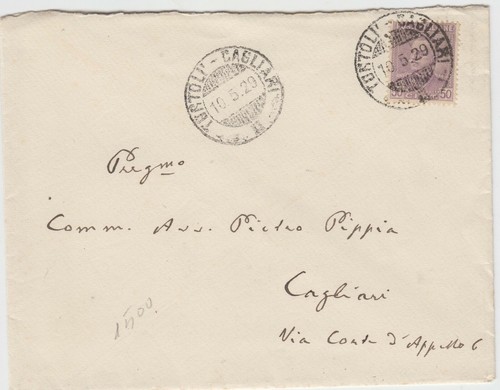 TORTOLI' - CAGLIARI
10.5.29
TORTOLI' - CAGLIARI
10.5.29
50
Pregmo
Comm. Avv. Pietro Pippia
Cagliari
Via Conte d'Appello 6
1500